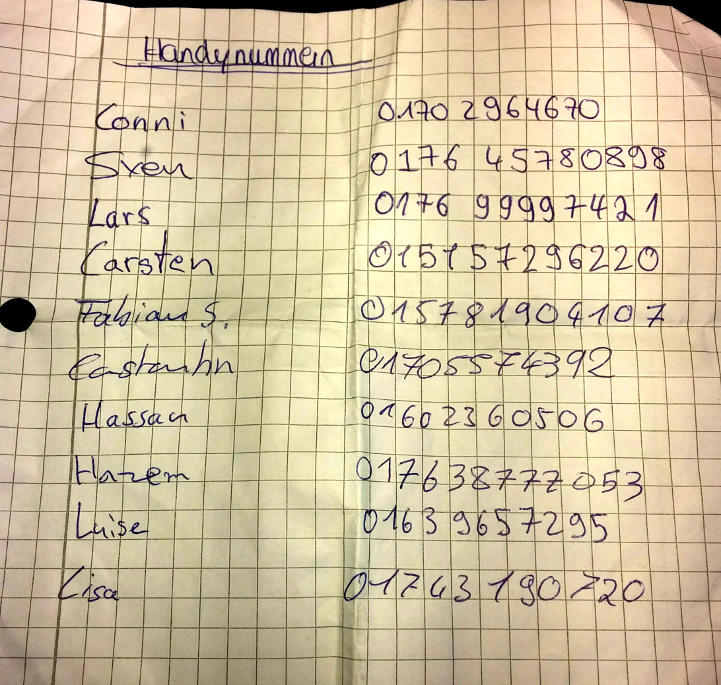 Handynummern
Conni 0170 2964670
Sven 0176 45780898
Lars 0176 99997421
Carsten 015157296220
Fabian S. 015781904107
01705574392
Hassan 01602360506
Hazem 017638777053
Luise 01639657295
Lisa 01743190720